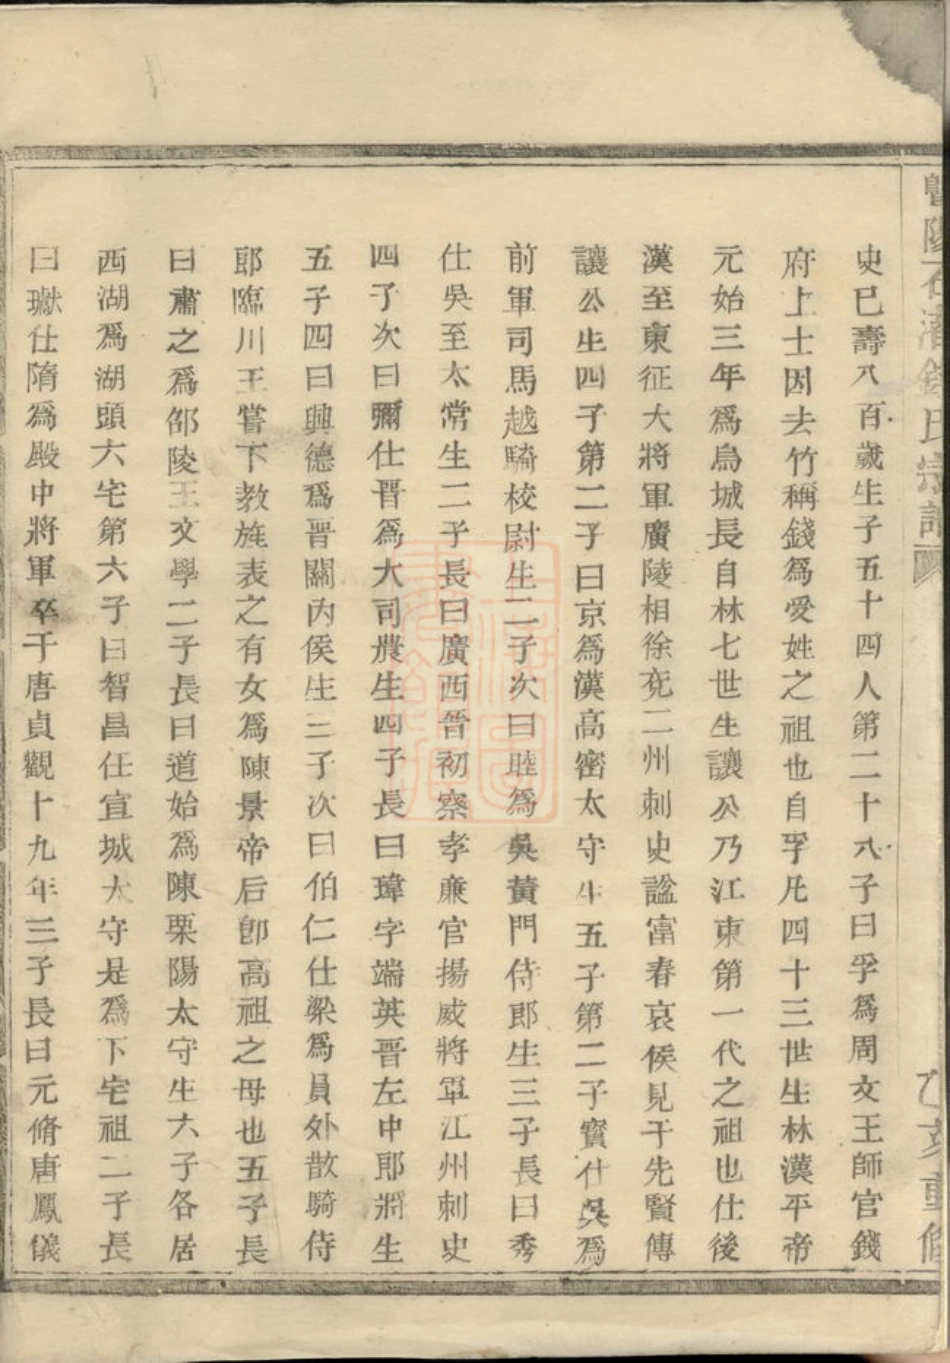 暨陽石瀆錢氏宗譜
乙亥重修
史巳壽八百歲生子五十四人第二十八子曰孚爲周文王師官錢
府上士因去竹稱錢爲愛姓之祖也自孚凡四十三世生林漢平帝
元始三年爲烏城長自林七世生讓公乃江東第一代之祖也仕後
漢至東征大將軍廣陵相徐兗二州刺史諡富春哀侯見于先賢傳
讓公生四子第二子曰京爲漢高密太守生五子第二子寳仕吳爲
前軍司馬越騎校尉生二子次曰睦爲吳黃門侍郎生三子長曰秀
仕吳至太常生二子長曰廣西晉初察孝亷官揚威將軍江州刺史
四子次曰彌仕晋爲大司農生四子長曰瑋字端英晋左中郎將生
五子四曰興德爲晋關內侯生三子次曰伯仁仕梁爲員外散騎侍
郎臨川王嘗下教旌表之有女爲陳景帝后卽高祖之母也五子長
曰肅之爲邵陵王文學二子長曰道始爲陳栗陽太守生六子各居
西湖爲湖頭六宅第六子曰智昌任宣城大守是爲下宅祖二子長
曰𤩴仕隋爲殿中將軍卒于唐貞觀十九年三子長曰元脩唐鳳儀